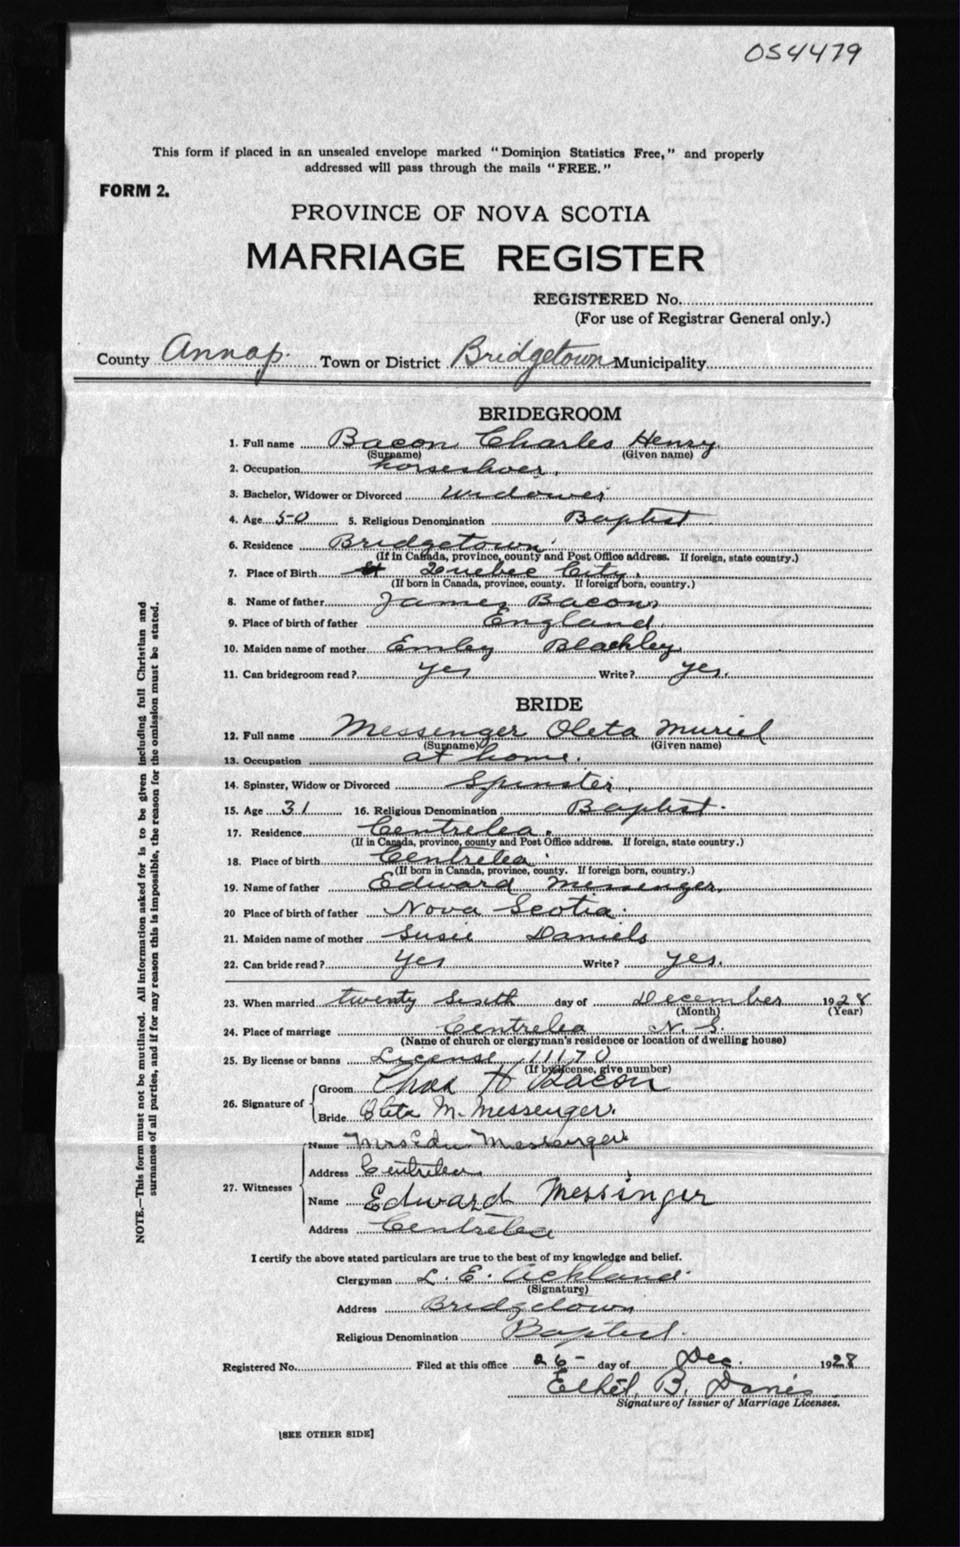 054479
This form if placed in an unsealed envelope marked "Dominion Statistics Free," and properly
addressed will pass through the mails "FREE."
FORM 2.
PROVINCE OF NOVA SCOTIA
MARRIAGE REGISTER
REGISTERED No.
(For use of Registrar General only.)
County Annap. Town or District Bridgetown Municipality
BRIDEGROOM
1. Full name Bacon Charles Henry
(Surname) (Given name)
2. Occupation horseshoer.
3. Bachelor, Widower or Divorced Widower
4. Age 50 5. Religious Denomination Baptist.
6. Residence Bridgetown
(If in Canada, province, county and Post Office address. If foreign, state country.)
7. Place of Birth Quebec City.
(If born in Canada, province, county. If foreign born, country.)
8. Name of father James Bacon
9. Place of birth of father England.
10. Maiden name of mother Emley Blackley
11. Can bridegroom read? Yes Write? Yes.
BRIDE
12. Full name Messenger Oleta Muriel
(Surname) (Given name)
13. Occupation at home.
14. Spinster, Widow or Divorced Spinster.
15. Age 31 16. Religious Denomination Baptist.
17. Residence Centrelea.
(If in Canada, province, county and Post Office address. If foreign, state country.)
18. Place of birth Centrelea.
(If born in Canada, province, county. If foreign born, country.)
19. Name of father Edward Messenger.
20 Place of birth of father Nova Scotia.
21. Maiden name of mother Susie Daniels
22. Can bride read? Yes Write? Yes.
23. When married twenty sixth day of December 1928
(Month) (Year)
24. Place of marriage Centrelea N. S.
(Name of church or clergyman's residence or location of dwelling house)
25. By license or banns License 11170
(If by license, give number)
26. Signature of Groom Chas H Bacon
Bride Oleta M. Messenger.
27. Witnesses Name Mrs Edw Messenger
Address Centrelea
Name Edward Messinger
Address Centrelea
I certify the above stated particulars are true to the best of my knowledge and belief.
Clergyman L. E. Ackland.
(Signature)
Address Bridgetown
Religious Denomination Baptist.
Registered No. Filed at this office 26- day of Dec. 1928
Ethel B. Davis
Signature of Issuer of Marriage Licenses.
[SEE OTHER SIDE]
NOTE.—This form must not be mutilated. All information asked for is to be given including full Christian and
surnames of all parties, and if for any reason this is impossible, the reason for the omission must be stated.